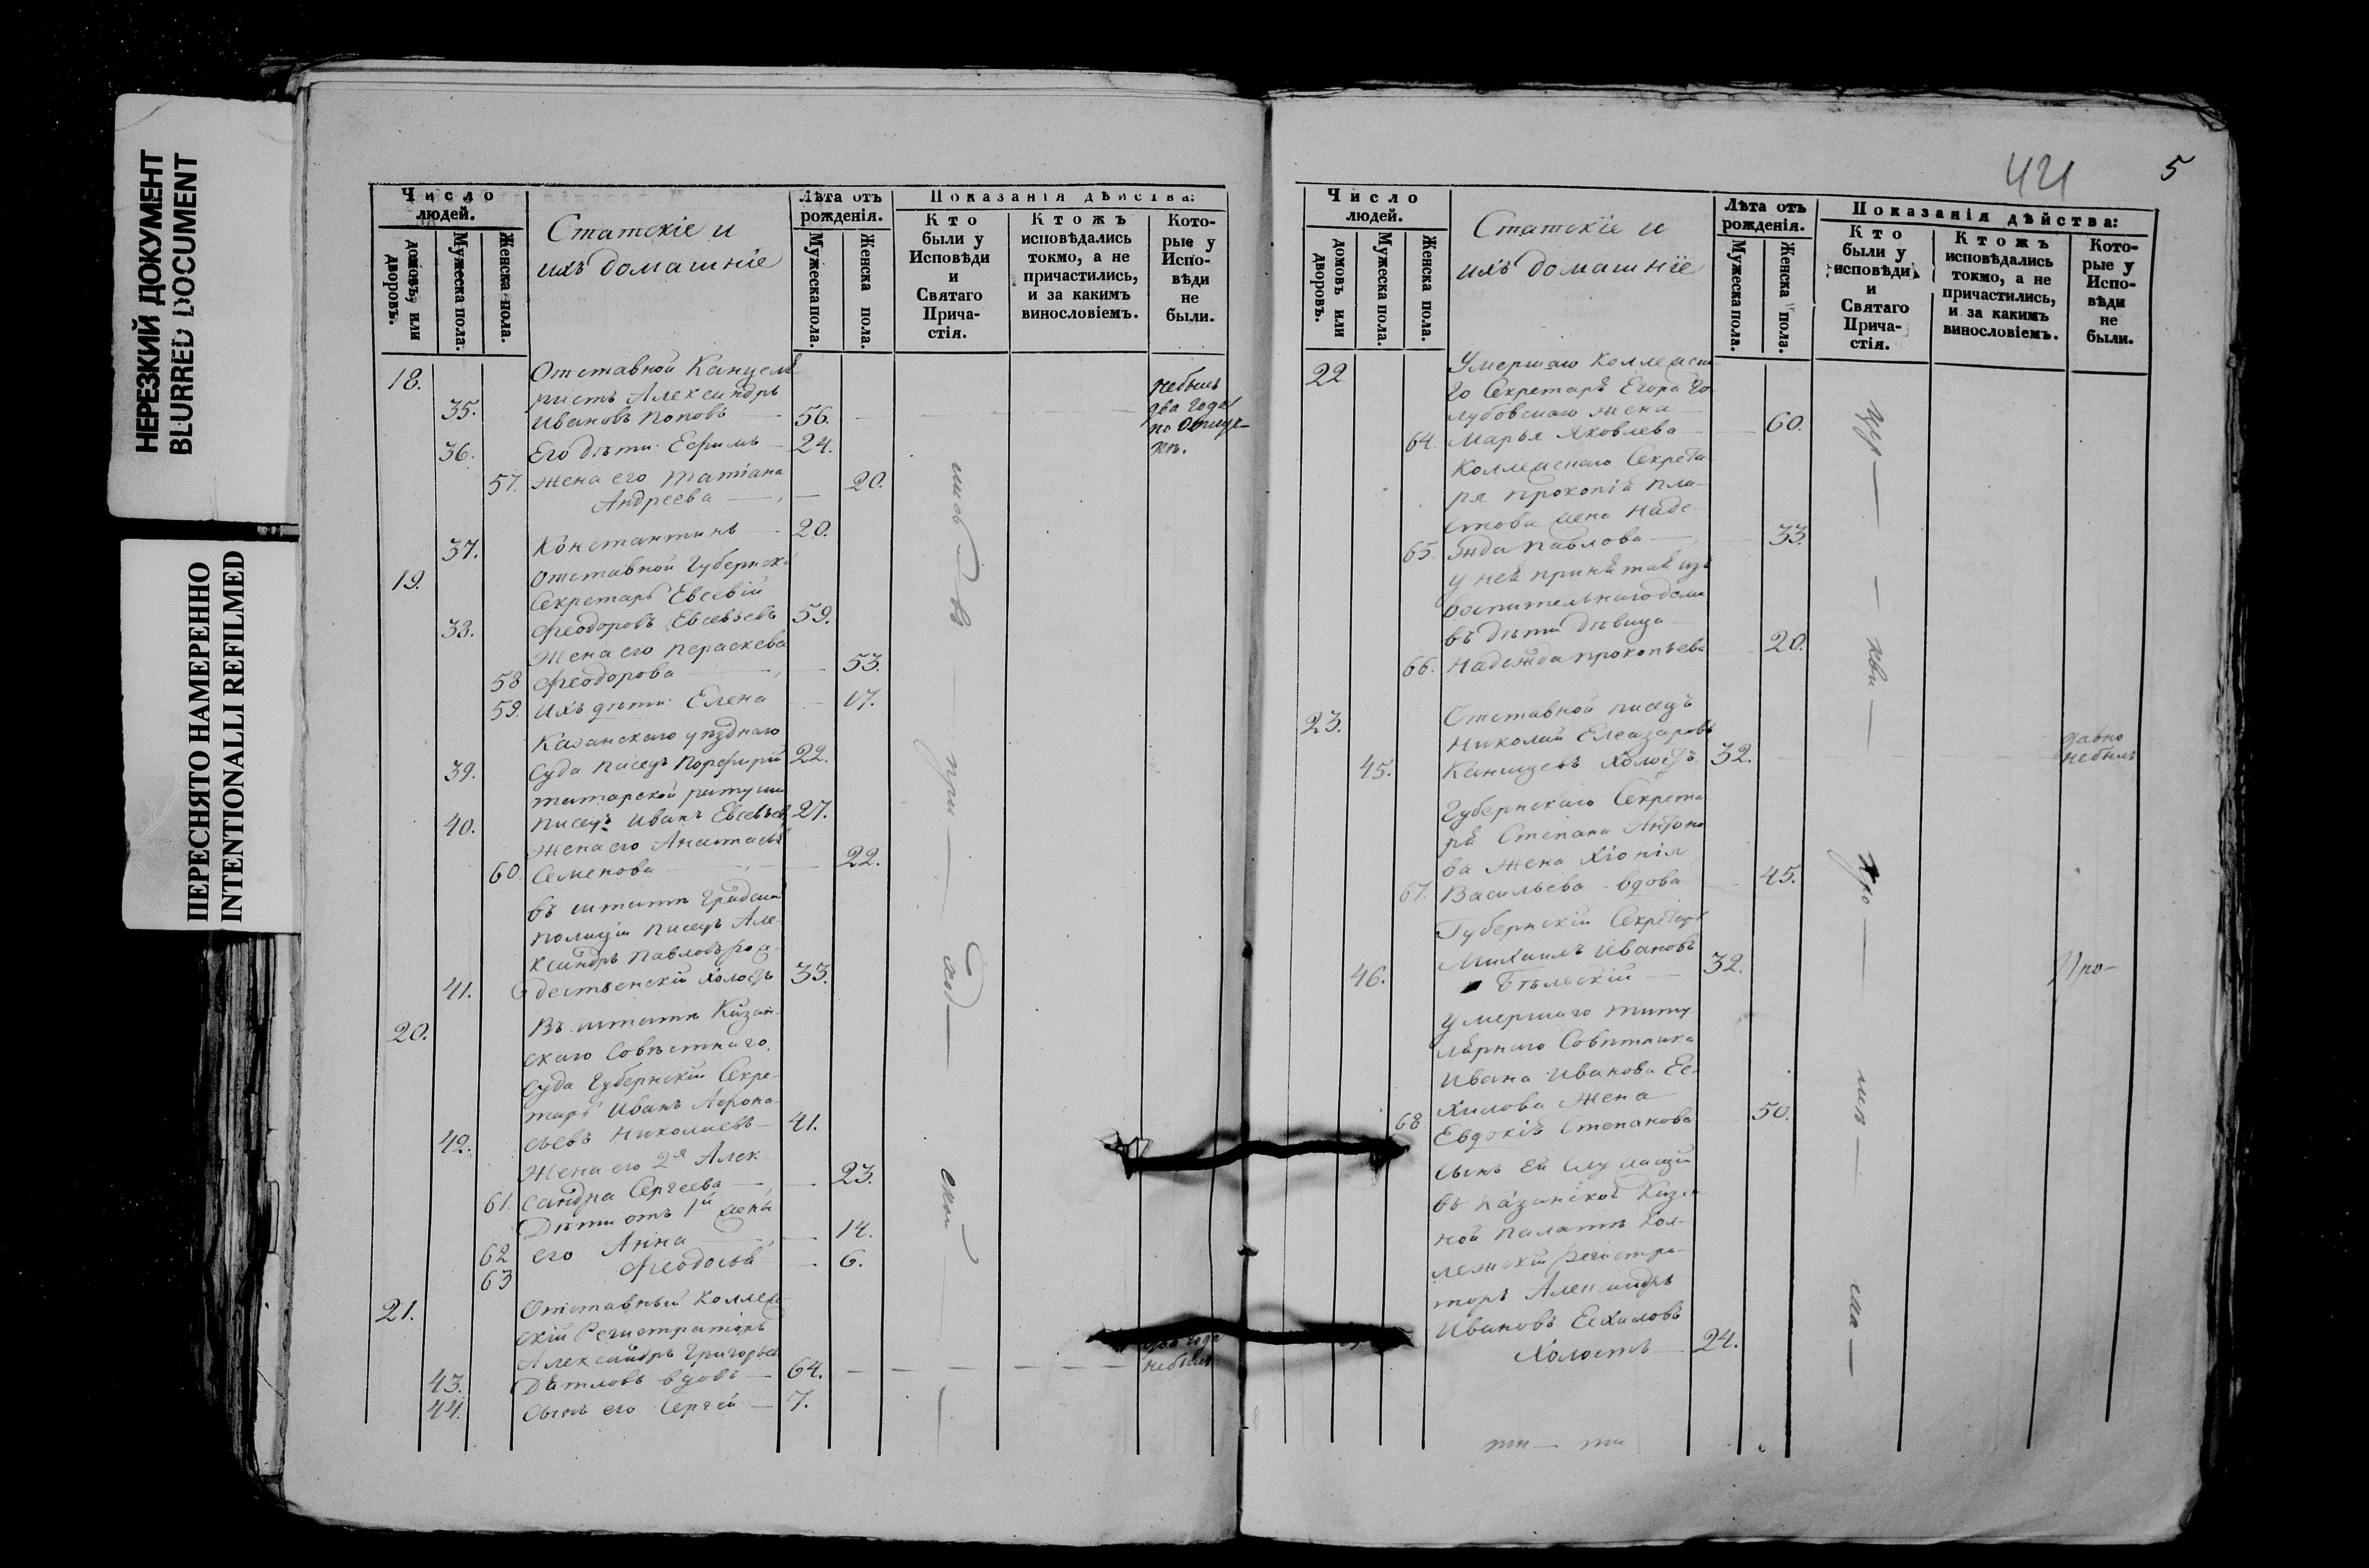 НЕРЕЗКИЙ ДОКУМЕНТ
BLURRED DOCUMENT
ПЕРЕСНЯТО НАМЕРЕННО
INTENTIONALLI REFILMED
Число людей.
домовъ или дворовъ.
Мужеска пола.
Женска пола.
Статскіе и
ихъ домашніе
Лѣта отъ рожденія.
Мужеска пола.
Женска пола.
Показанія дѣйства:
Кто были у Исповѣди и Святаго Прича-стія.
Ктожъ исповѣдались токмо, а не причастились, и за какимъ винословіемъ.
Кото-рые у Испо-вѣди не были.
18. Отставной Канцеля
ристъ Александръ
35. Ивановъ Поповъ 56.
небылъ
два года
по
36. Его дѣти: Ефимъ 24.
57. жена его Татіана 20.
Андреева
37. Константинъ 20.
19. Отставной Губернскі
Секретарь Евсевій
38. Феодоровъ Евсевьевъ 59.
Жена его Параскева
58 Феодорова 53.
59. Ихъ дѣти: Елена 17.
Казанскаго уѣзднаго
39. Суда писецъ Порфирій 22.
татарской ратуши
40. писецъ Иванъ Евсевьевъ 27.
Жена его Анастасія
60. Семенова 22.
въ штатѣ Градской
полиціи писецъ Але-
ксандръ Павловъ Рож-
41. дественскій холостъ 33.
20. Въ штатѣ Казан-
скаго Совѣстнаго
Суда Губернскій Секре-
тарь Иванъ Афона-
42. сьевъ Николаевъ 41.
Жена его 2я Алек
61. сандра Сергеева 23.
Дѣти отъ 1й жены
62 его Анна 14.
63 Феодосья 6.
21. Отставный Коллеж
скій Регистраторъ
Александръ Григорьев
43. Дятловъ вдовъ 64.
года
небылъ
44. Сынъ его Сергѣй 7.
421
5
Число людей.
домовъ или дворовъ.
Мужеска пола.
Женска пола.
Статскіе и
ихъ домашніе
Лѣта отъ рожденія.
Мужеска пола.
Женска пола.
Показанія дѣйства:
Кто были у исповѣди и Святаго Прича-стія.
Ктожъ исповѣдались токмо, а не причастились, и за какимъ винословіемъ.
Кото-рые у Испо-вѣди не были.
22 Умершаго Коллежска
го Секретаря Егора Го
лубовскаго жена
64. Марья Яковлева 60.
Коллежскаго Секрета
ря Прокопія Пла-
това жена Наде-
65. жда Павлова 33.
у ней принятая изъ
воспительнаго дома
въ дѣти дѣвица
66. Надежда Прокопьева 20.
23. Отставной писецъ
Николай Елеазаровъ
45. Канищевъ холостъ 32.
давно
небылъ
Губернскаго Секрета
ря Степана Антоно
ва жена Хіонія
67. Васильева вдова 45.
Губернскій Секретарь
Михаилъ Ивановъ
46. Бѣльскій 32.
Про-
умершаго титу
лярнаго Совѣтника
Ивана Иванова Ес
хилова жена
68 Евдокія Степанова 50.
сынъ ей служащій
въ Казанской Казен
ной Палатѣ Кол-
лежскій Регистра-
торъ Александръ
Ивановъ Есхиловъ
Холостъ 24.